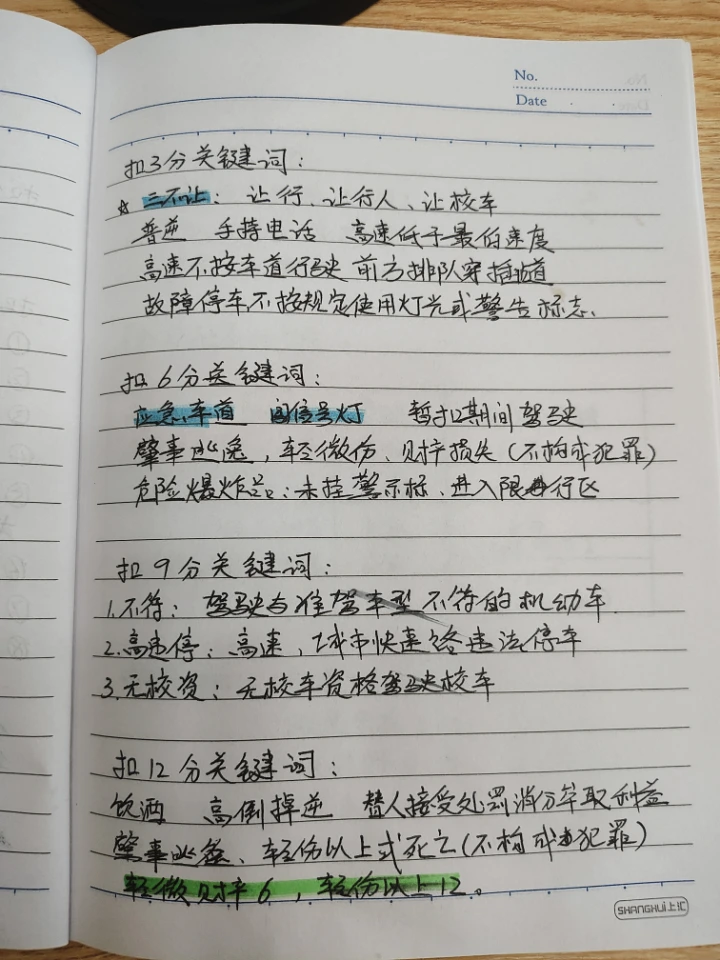 No.
Date
扣3分关键词：
☆ 三不让：让行、让行人、让校车
普逆 手持电话 高速低于最低速度
高速不按车道行驶 前方排队穿插
故障停车不按规定使用灯光或警告标志、
扣6分关键词：
应急车道 闯信号灯 暂扣期间驾驶
肇事逃逸，轻微伤、财产损失（不构成犯罪）
危险爆炸品：未挂警示标、进入限行区
扣9分关键词：
1.不符：驾驶与准驾车型不符的机动车
2.高速停：高速，城市快速路违法停车
3.无校资：无校车资格驾驶校车
扣12分关键词：
饮酒 高倒掉逆 替人接受处罚消分牟取利益
肇事逃逸、轻伤以上或死亡（不构成犯罪）
轻微财产6，轻伤以上12。
SHANGHUI上汇